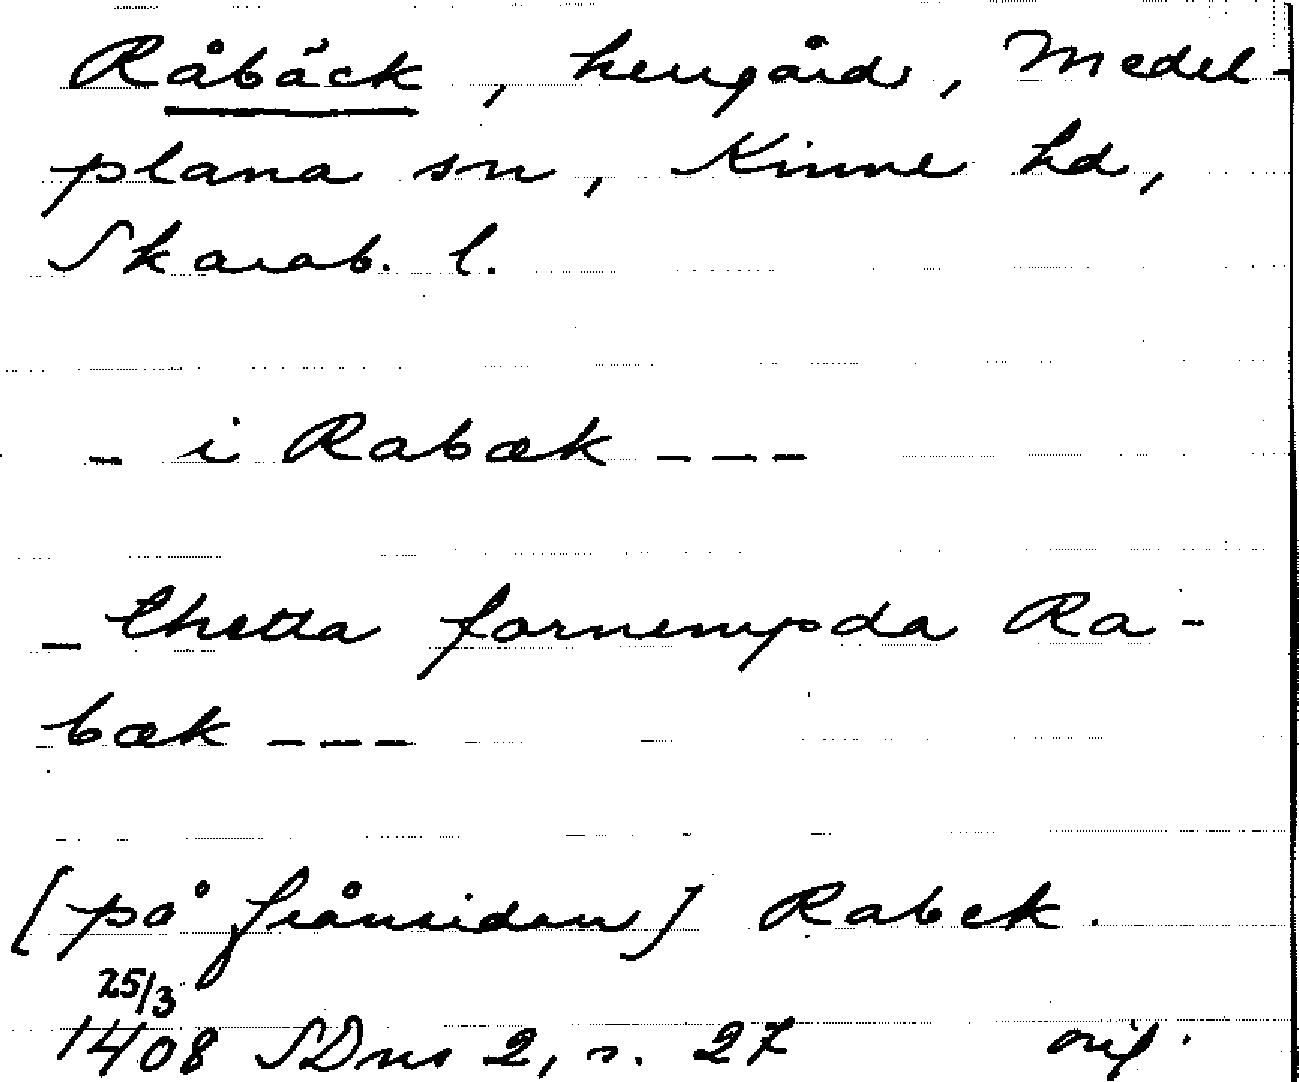 Råbäck, herrgård, Medel-
plana sn, Kinne hd,
Skarab. l.
- i Rabæk ---
- thetta fornempda Ra-
bæk ---
[på frånsidan] Rabek.
25/3
1408 SDns 2, s. 27 orig.